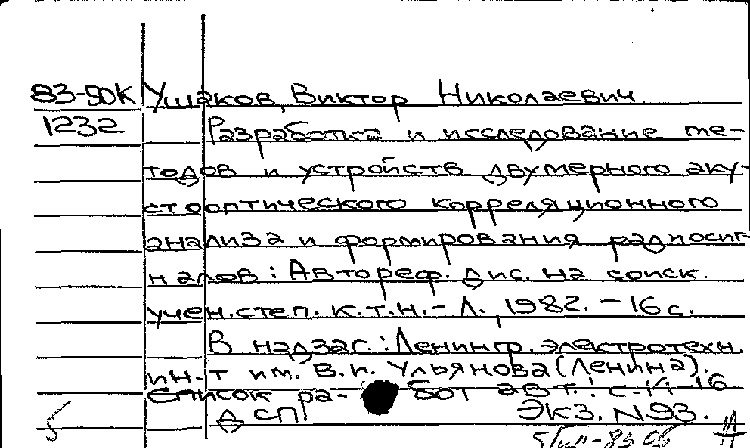 83-90К Ушаков, Виктор Николаевич.
1232 Разработка и исследование ме-
тодов и устройств двумерного аку-
стооптического корреляционного
анализа и формирования радиосиг-
налов: Автореф. дис. на соиск.
учен. степ. к.т.н. - Л., 1982. - 16 с.
В надзаг.: Ленингр. электротехн.
ин-т им. В.И. Ульянова (Ленина).
Список ра- бот авт.: с. 14-16
ДСП! Экз. N.93.